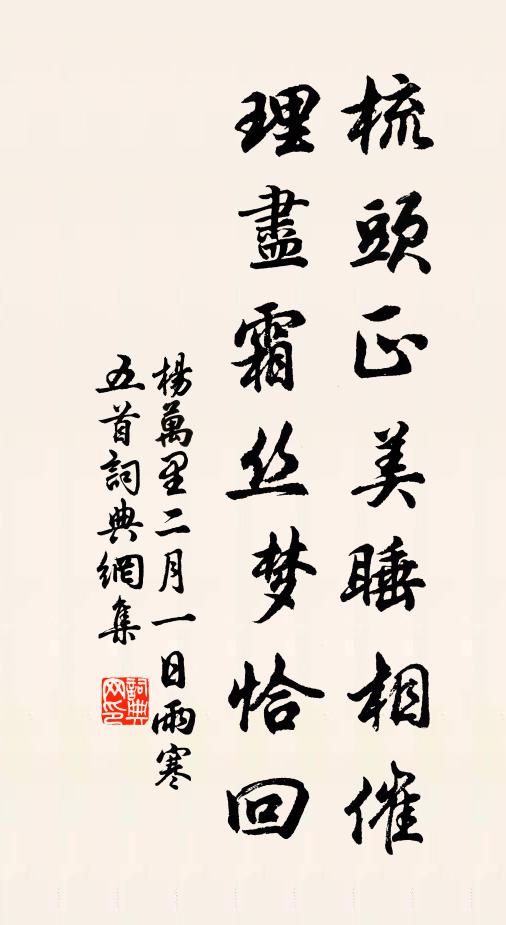 梳頭正美睡相催
理盡霜丝梦恰回
楊萬里二月一日雨寒
五首詞典網集
詞典网印